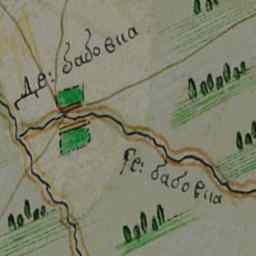 Дв: бабовна
Рв: бабовна